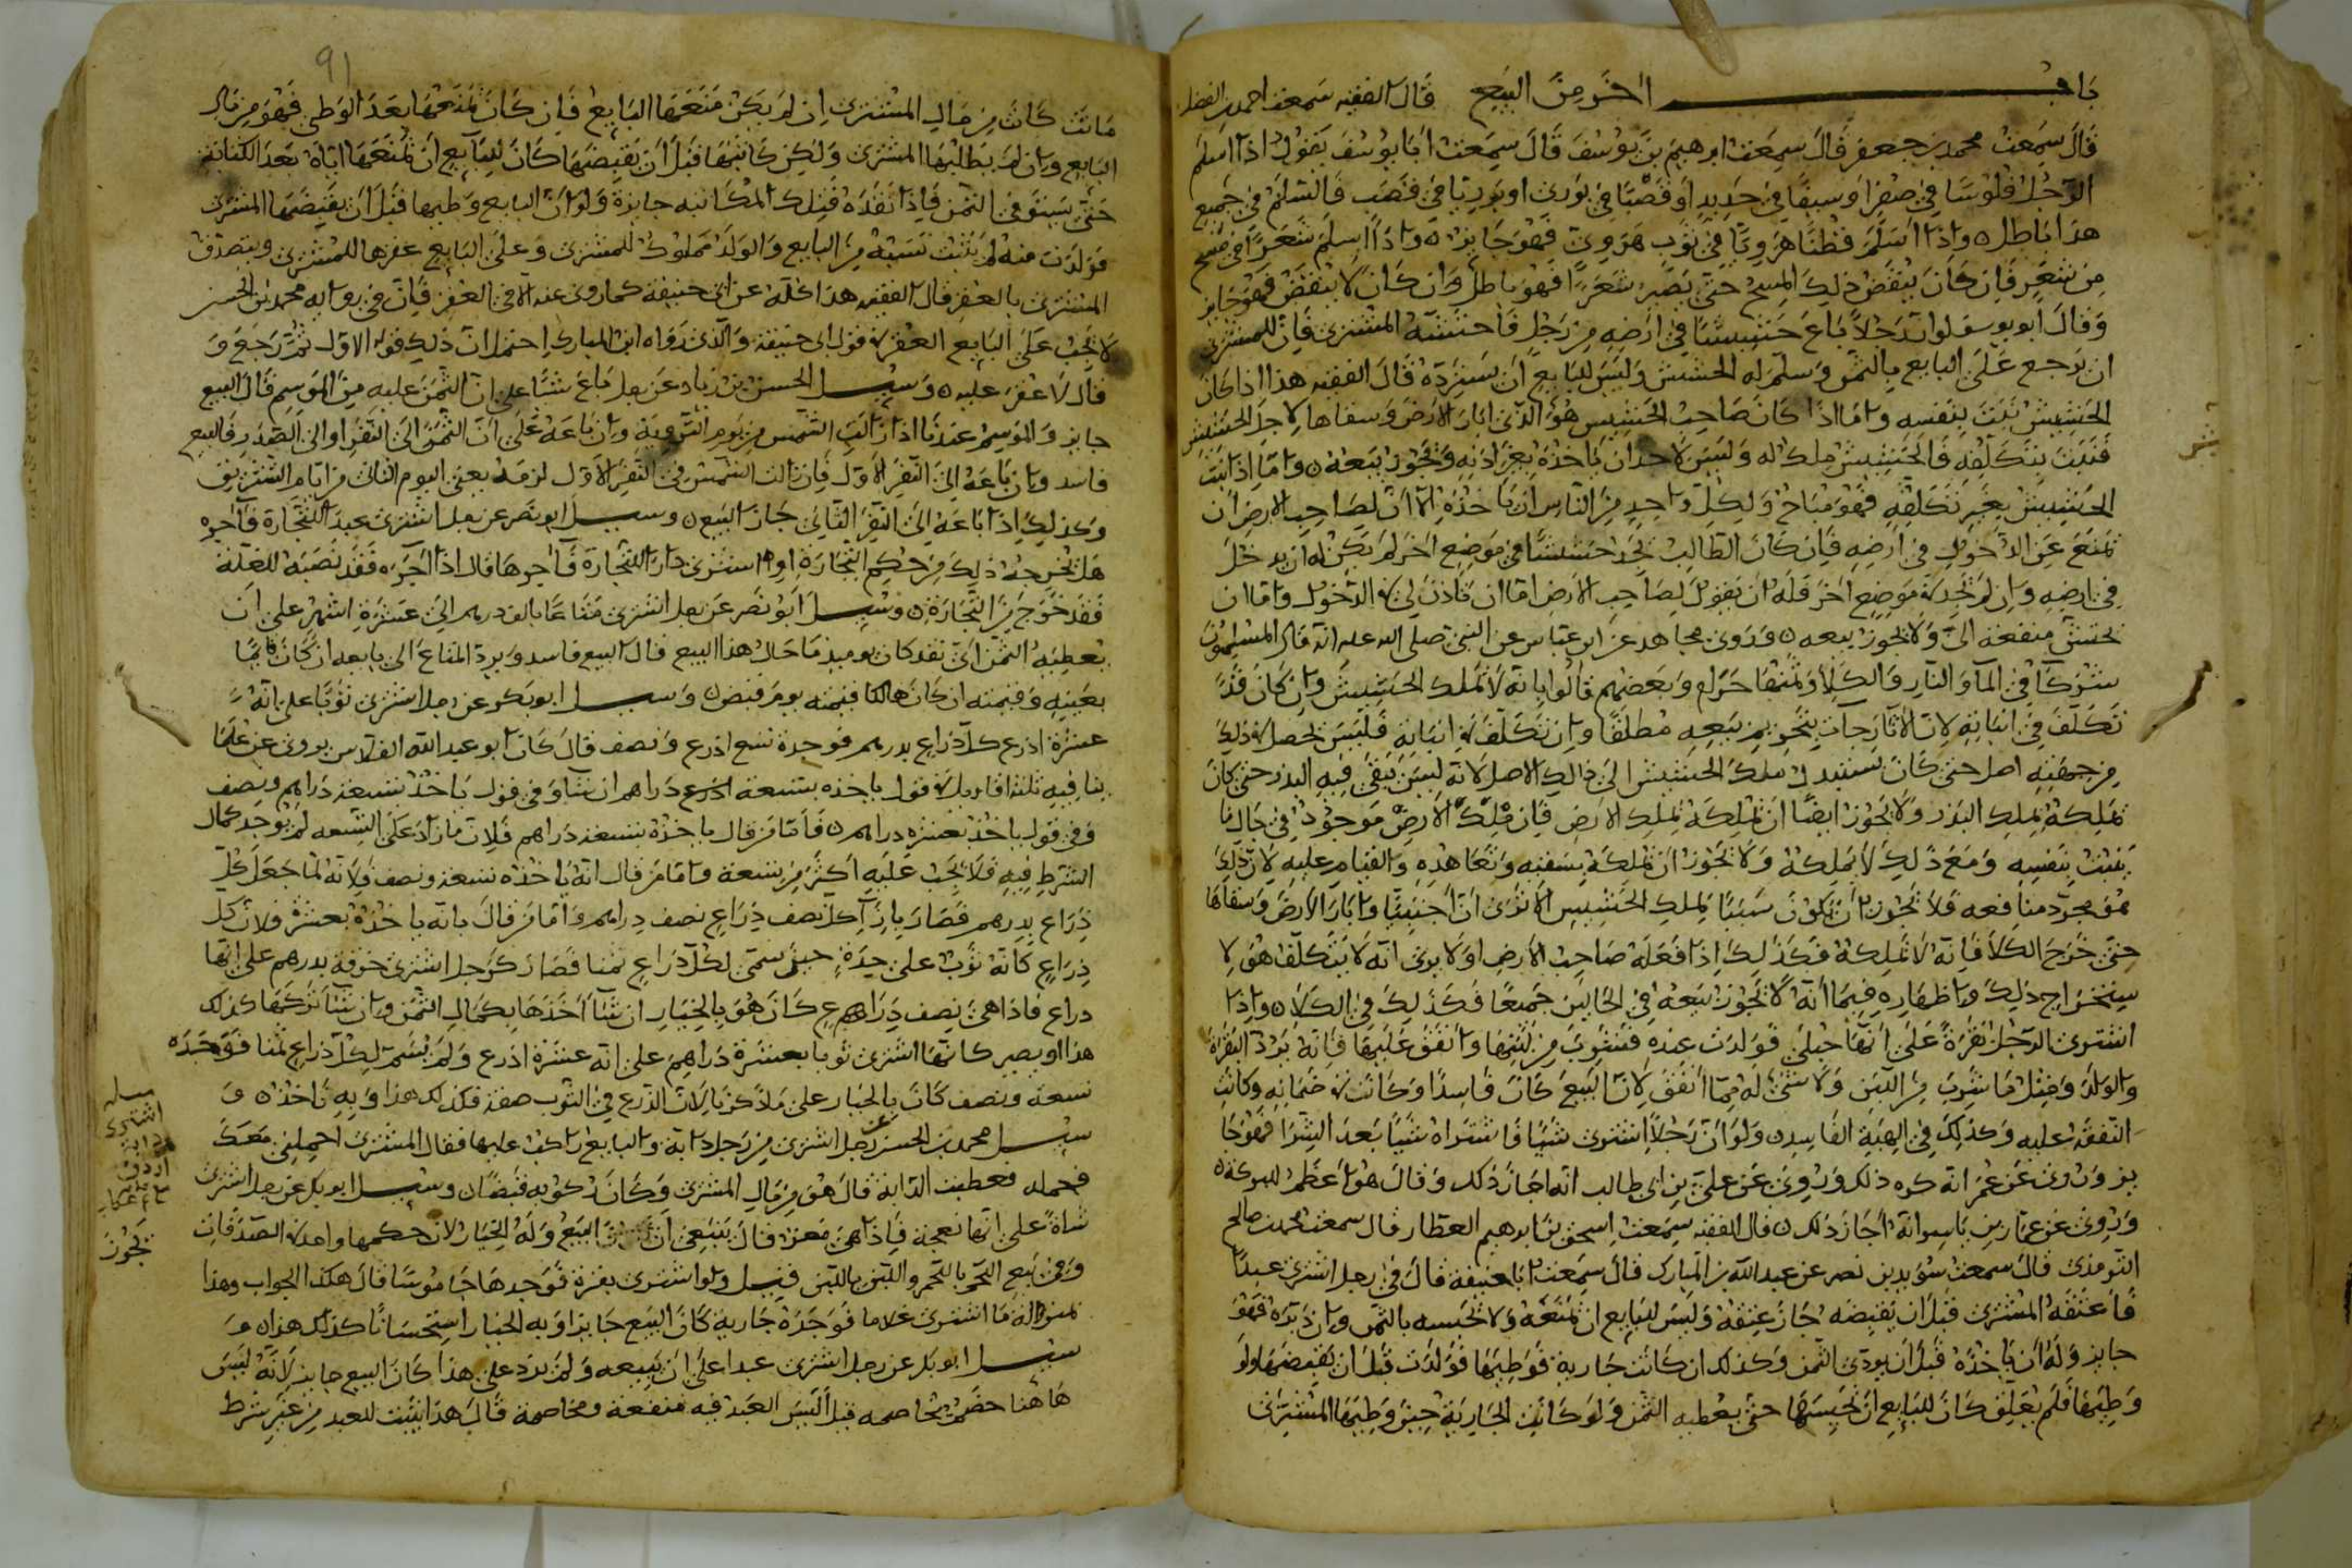 باب اخر من البيع قال الفقيه سمعت احمد بن الفضل
قال سمعت محمد بن جعفر قال سمعت ابرهيم بن يوسف قال سمعت ابا يوسف يقول اذا اسلم
الرجل فلوسا في صفر او سيفا في حديد او قصبا في بوري او بوريا في قصب فالسلم في جميع
هذا باطل واذا اسلم قطنا هرويا في ثوب هروي فهو جايز واذا اسلم شعرا في مسح
من شعر فان كان ينقض ذلك المسح حتى يصير شعرا فهو باطل وان كان لا ينقض فهو جايز
وقال ابو يوسف لو ان رجلا باع حشيشا في ارضه من رجل فاحتشه المشتري فان للمشتري
ان يرجع على البايع بالثمن وسلم له الحشيش وليس للبايع ان يسترده قال الفقيه هذا اذا كان
الحشيش نبت بنفسه واما اذا كان صاحب الحشيش هو الذي ابار الارض وسقاها لاجل الحشيش
فنبت بتكلفه فالحشيش ملك له وليس لاحد ان ياخذه بغير اذنه ويجوز بيعه واما اذا نبت
الحشيش بغير تكلفه فهو مباح ولكل واحد من الناس ان ياخذه الا ان لصاحب الارض ان
يمنع عن الدخول في ارضه فان كان الطالب يجد حشيشا في موضع اخر لم يكن له ان يدخل
في ارضه وان لم يجد في موضع اخر فله ان يقول لصاحب الارض اما ان تاذن لي في الدخول واما ان
تحتش منفعة الي ولا يجوز بيعه وروى مجاهد عن ابن عباس عن النبي صلى الله عليه انه قال المسلمون
شركا في الما والنار والكلا وثمنها حرام وبعضهم قالوا بانه لا يملك الحشيش وان كان قد
تكلف في انباته
من جهته اصل حتى كان يستند ملك الحشيش الى ذلك الاصل لانه ليس يبقى فيه البذر حتى كان
يملكه بملك البذر ولا يجوز ايضا ان يملكه بملك الارض فان ملك الارض موجود في حال ما
ينبت بنفسه ومع ذلك لا يملكه ولا يجوز ان يملكه بسقيه وتعاهده والقيام عليه لان ذلك
هو مجرد منافعه فلا يجوز ان يكون سببا لملك الحشيش الا ترى ان اجنبيا لو ابار الارض وسقاها
حتى خرج الكلا فانه لا يملكه فكذلك اذا فعله صاحب الارض اولا يرى انه لا يتكلف هو لا
ستخراج ذلك واظهاره فيما انه لا يجوز بيعه في الحالين جميعا فكذلك في الكلا واذا
اشترى الرجل بقرة على انها حبلى فولدت عنده فشرب من لبنها وانفق عليها فانه يرد البقرة
والولد ومثل ما شرب من اللبن ولا شي له مما انفق لان البيع كان فاسدا وكانت في ضمانه وكانت
النفقة عليه وكذلك في الهبة الفاسدة ولو ان رجلا اشترى شيا فاشتراه شيا بعد الشرا فهو جا
يز وروى عن عمر انه كره ذلك وروي عن علي بن ابي طالب انه اجاز ذلك وقال هو اعظم للبركة
وروي عن عمار بن ياسر انه اجاز ذلك قال الفقيه سمعت اسحق بن ابرهيم العطار قال سمعت محمد بن صالح
الترمذي قال سمعت سويد بن نصر عن عبد الله بن المبارك قال سمعت ابا حنيفة قال في رجل اشترى عبدا
فاعتقه المشتري قبل ان يقبضه جاز عتقه وليس للبايع ان يمنعه ولا يحبسه بالثمن وان دبره فهو
جايز وله ان ياخذه قبل ان يودي الثمن وكذلك ان كانت جارية فوطيها فولدت قبل ان يقبضها ولو
وطيها فلم يعلق كان للبايع ان يحبسها حتى يعطيه الثمن ولو كانت الجارية حين وطيها المشتري
91
ماتت كانت من مال المشتري ان لم يكن منعها البايع فان كان منعها بعد الوطي فهو من مال
البايع وان لم يطلبها المشتري ولكن كاتبها قبل ان يقبضها كان للبايع ان يمنعها اياه بعد الكتابة
حتى يستوفي الثمن فاذا نقده قبل المكاتبه جايزة ولو ان البايع وطيها قبل ان يقبضها المشتري
فولدت منه لم يثبت نسبه من البايع والولد مملوك للمشتري وعلى البايع عقرها للمشتري ويتصدق
المشتري بالعقر قال الفقيه هذا كله عن ابي حنيفة كما روي عنه الا في العقر فان في رواية محمد بن الحسن
لا يجب على البايع العقر في قول ابي حنيفة والذي رواه ابن المبارك احتمل ان ذلك قوله الاول ثم رجع و
قال لا عقر عليه وسيل الحسن بن زياد عن رجل باع شيا على ان الثمن عليه من الموسم قال البيع
جايز والموسم عندنا اذا زالت الشمس من يوم التروية وان باعه على ان الثمن الى النفر او الى الصدر فالبيع
فاسد وان باعه الى النفر الاول فان زالت الشمس في النفر الاول لزمه يعني اليوم الثاني من ايام التشريق
وكذلك اذا باعه الى النفر الثاني جاز البيع وسيل ابو نصر عن رجل اشترى عبدا للتجارة فآجره
هل يخرجه ذلك من حكم التجارة او اشترى دارا للتجارة فآجرها قال اذا آجره فقد نصبه للغلة
فقد خرج من التجارة وسيل ابو نصر عن رجل اشترى متاعا بالف درهم الى عشرة اشهر على ان
يعطيه الثمن اي نقد كان يوميذ ما حال هذا البيع قال البيع فاسد ويرد المتاع الى بايعه ان كان قايما
بعينه وقيمته ان كان هالكا قيمته يوم قبض وسيل ابو بكر عن رجل اشترى ثوبا على انه
عشرة اذرع كل ذراع بدرهم فوجده تسع اذرع ونصف قال كان ابو عبد الله القلاس يروي عن علما
ينا فيه ثلثة اقاويل في قول ياخذه بتسعة دراهم ان شا وفي قول ياخذ بتسعة دراهم ونصف
وفي قول ياخذ بعشرة دراهم فاما من قال ياخذه بتسعة دراهم فلان ما زاد على التسعه لم يوجد كمال
الشرط فيه فلا يجب عليه اكثر من تسعة واما من قال انه ياخذه بتسعة ونصف فلانه لما جعل كل
ذراع بدرهم فصار بازا كل نصف ذراع نصف درهم واما من قال بانه ياخذه بعشرة فلان كل
ذراع كانه ثوب على حدة حين سمى لكل ذراع ثمنا فصار كرجل اشترى خرقة بدرهم على انها
ذراع فاذا هي نصف ذراع كان هو بالخيار ان شا اخذها بكمال الثمن وان شا تركها كذلك
هذا او يصير كانها اشترى ثوبا بعشرة دراهم على انه عشرة اذرع ولم يسم لكل ذراع ثمنا فوجده
تسعة ونصف كان بالخيار على ما ذكرنا لان الذرع في الثوب صفة فكذلك هذا وبه ناخذ و
سيل محمد بن الحسن عن رجل اشترى من رجل دابة والبايع راكب عليها فقال المشتري احملني معك
فحمله فعطبت الدابة قال هي من مال المشتري وكان ركوبه قبضا وسيل ابو بكر عن رجل اشترى
شاة على انها نعجة فاذا هي معز قال ينبغي ان البيع وله الخيار لان حكمها واحد في الصدقات
وفي بيع اللحم باللحم واللبن باللبن قيل ولو اشترى بقرة فوجدها جاموسا قال هكذا الجواب وهذا
بمنزلة ما اشترى غلاما فوجده جارية كان البيع جايزا وبه الخيار استحسانا كذلك هذا و
سيل ابو بكر عن رجل اشترى عبدا على ان يبيعه ولم يزد على هذا كان البيع جايز لانه ليس
هاهنا خصم يخاصمه قيل اليس العبد فيه منفعة ومخاصمة قال هذا يثبت للعبد من غير شرط
مسله
اشترى
دابة
يجوز